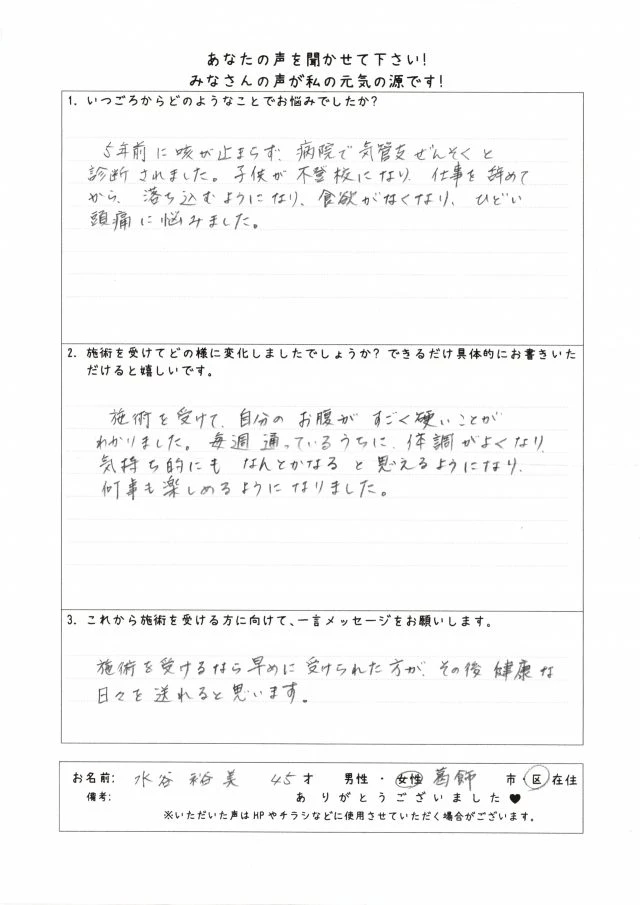 あなたの声を聞かせて下さい!
みなさんの声が私の元気の源です!
1. いつごろからどのようなことでお悩みでしたか?
5年前に咳が止まらず、病院で気管支ぜんそくと
診断されました。子供が不登校になり、仕事を辞めて
から、落ち込むようになり、食欲がなくなり、ひどい
頭痛に悩みました。
2. 施術を受けてどの様に変化しましたでしょうか? できるだけ具体的にお書きいた
だけると嬉しいです。
施術を受けて、自分のお腹がすごく硬いことが
わかりました。毎週通っているうちに、体調がよくなり、
気持ち的にもなんとかなると思えるようになり、
何事も楽しめるようになりました。
3. これから施術を受ける方に向けて、一言メッセージをお願いします。
施術を受けるなら早めに受けられた方が、その後健康な
日々を送れると思います。
お名前: 水谷 裕美 45才 男性・女性 葛飾 市・区在住
備考: ありがとうございました♥
※いただいた声はHPやチラシなどに使用させていただく場合がございます。